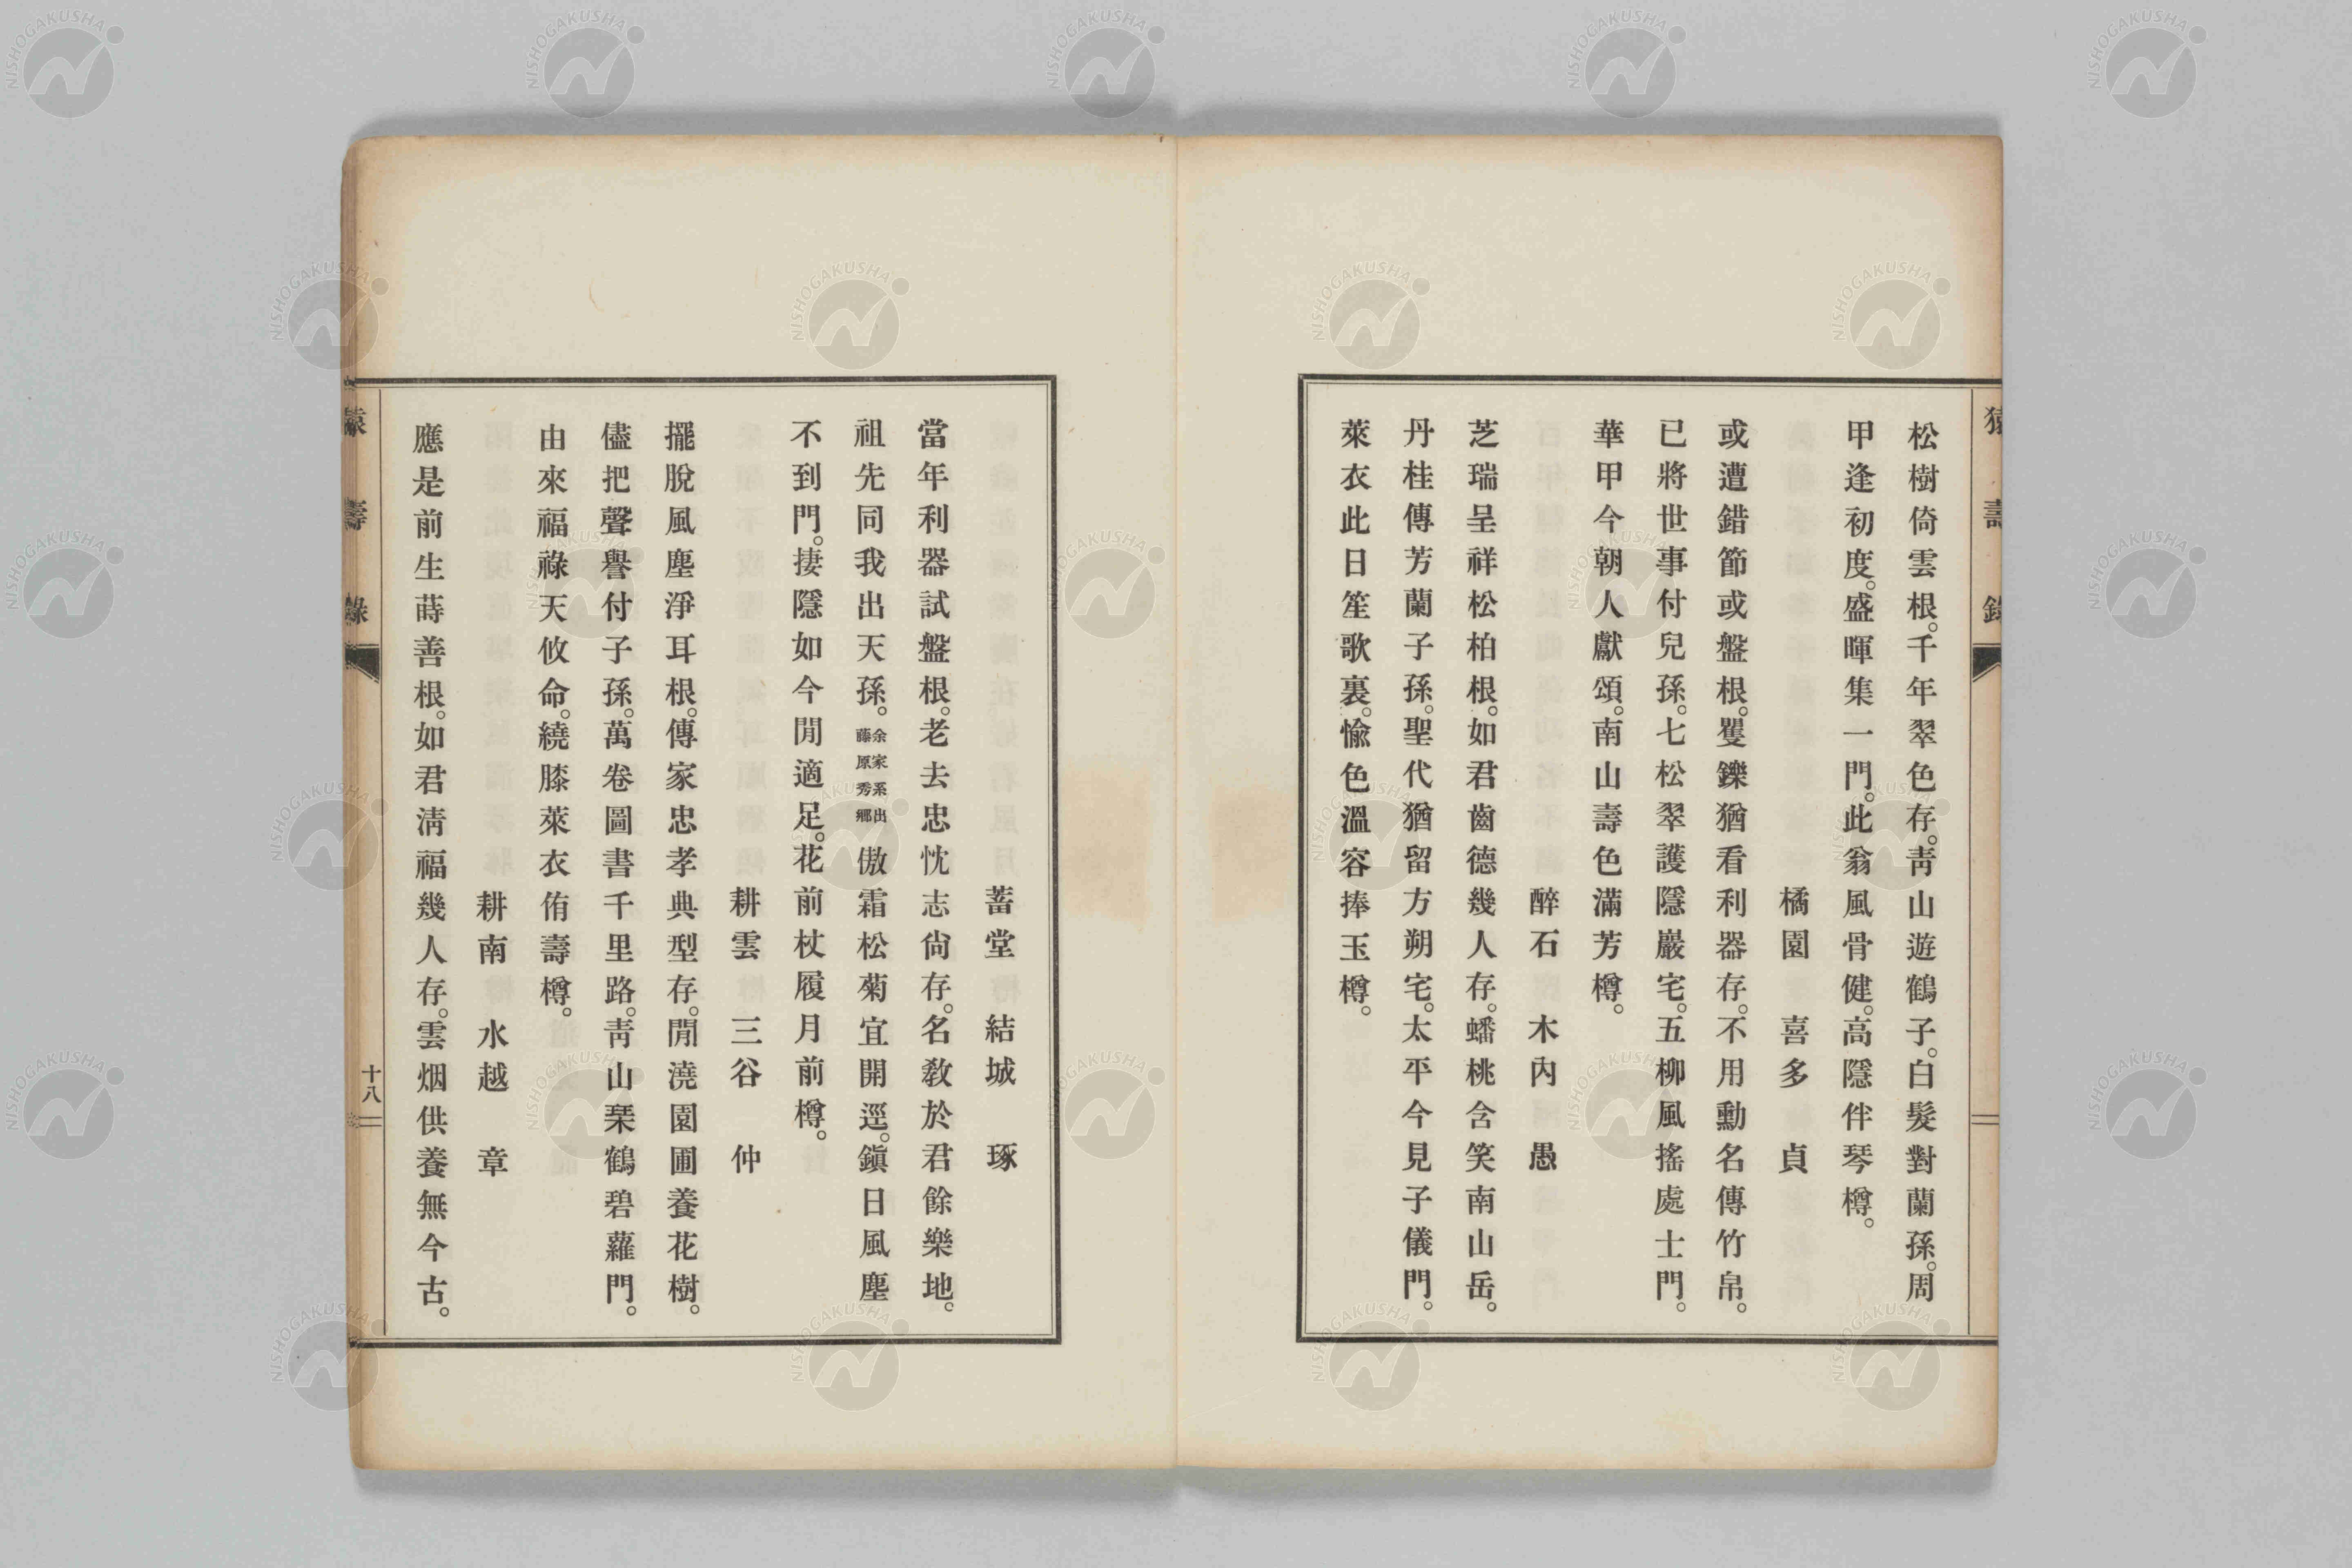 松樹倚雲根。千年翠色存。靑山遊鶴子。白髮對蘭孫。周
甲逢初度。盛暉集一門。此翁風骨健。高隱伴琴樽。
橘園　喜多　貞
或遭錯節或盤根。矍鑠猶看利器存。不用勳名傳竹帛。
已將世事付兒孫。七松翠護隱巖宅。五柳風搖處士門。
華甲今朝人獻頌。南山壽色滿芳樽。
醉石　木內　愚
芝瑞呈祥松柏根。如君齒德幾人存。蟠桃含笑南山岳。
丹桂傳芳蘭子孫。聖代猶留方朔宅。太平今見子儀門。
萊衣此日笙歌裏。愉色溫容捧玉樽。
蓄堂　結城　琢
當年利器試盤根。老去忠忱志尙存。名敎於君餘樂地。
祖先同我出天孫。余家系出藤原秀鄕傲霜松菊宜開逕。鎭日風塵
不到門。捿隱如今閒適足。花前杖履月前樽。
耕雲　三谷　仲
擺脫風塵淨耳根。傳家忠孝典型存。閒澆園圃養花樹。
儘把聲譽付子孫。萬卷圖書千里路。靑山琹鶴碧蘿門。
由來福祿天攸命。繞膝萊衣侑壽樽。
耕南　水越　章
應是前生蒔善根。如君淸福幾人存。雲烟供養無今古。
猿壽錄
十八
NISHOGAKUSHA